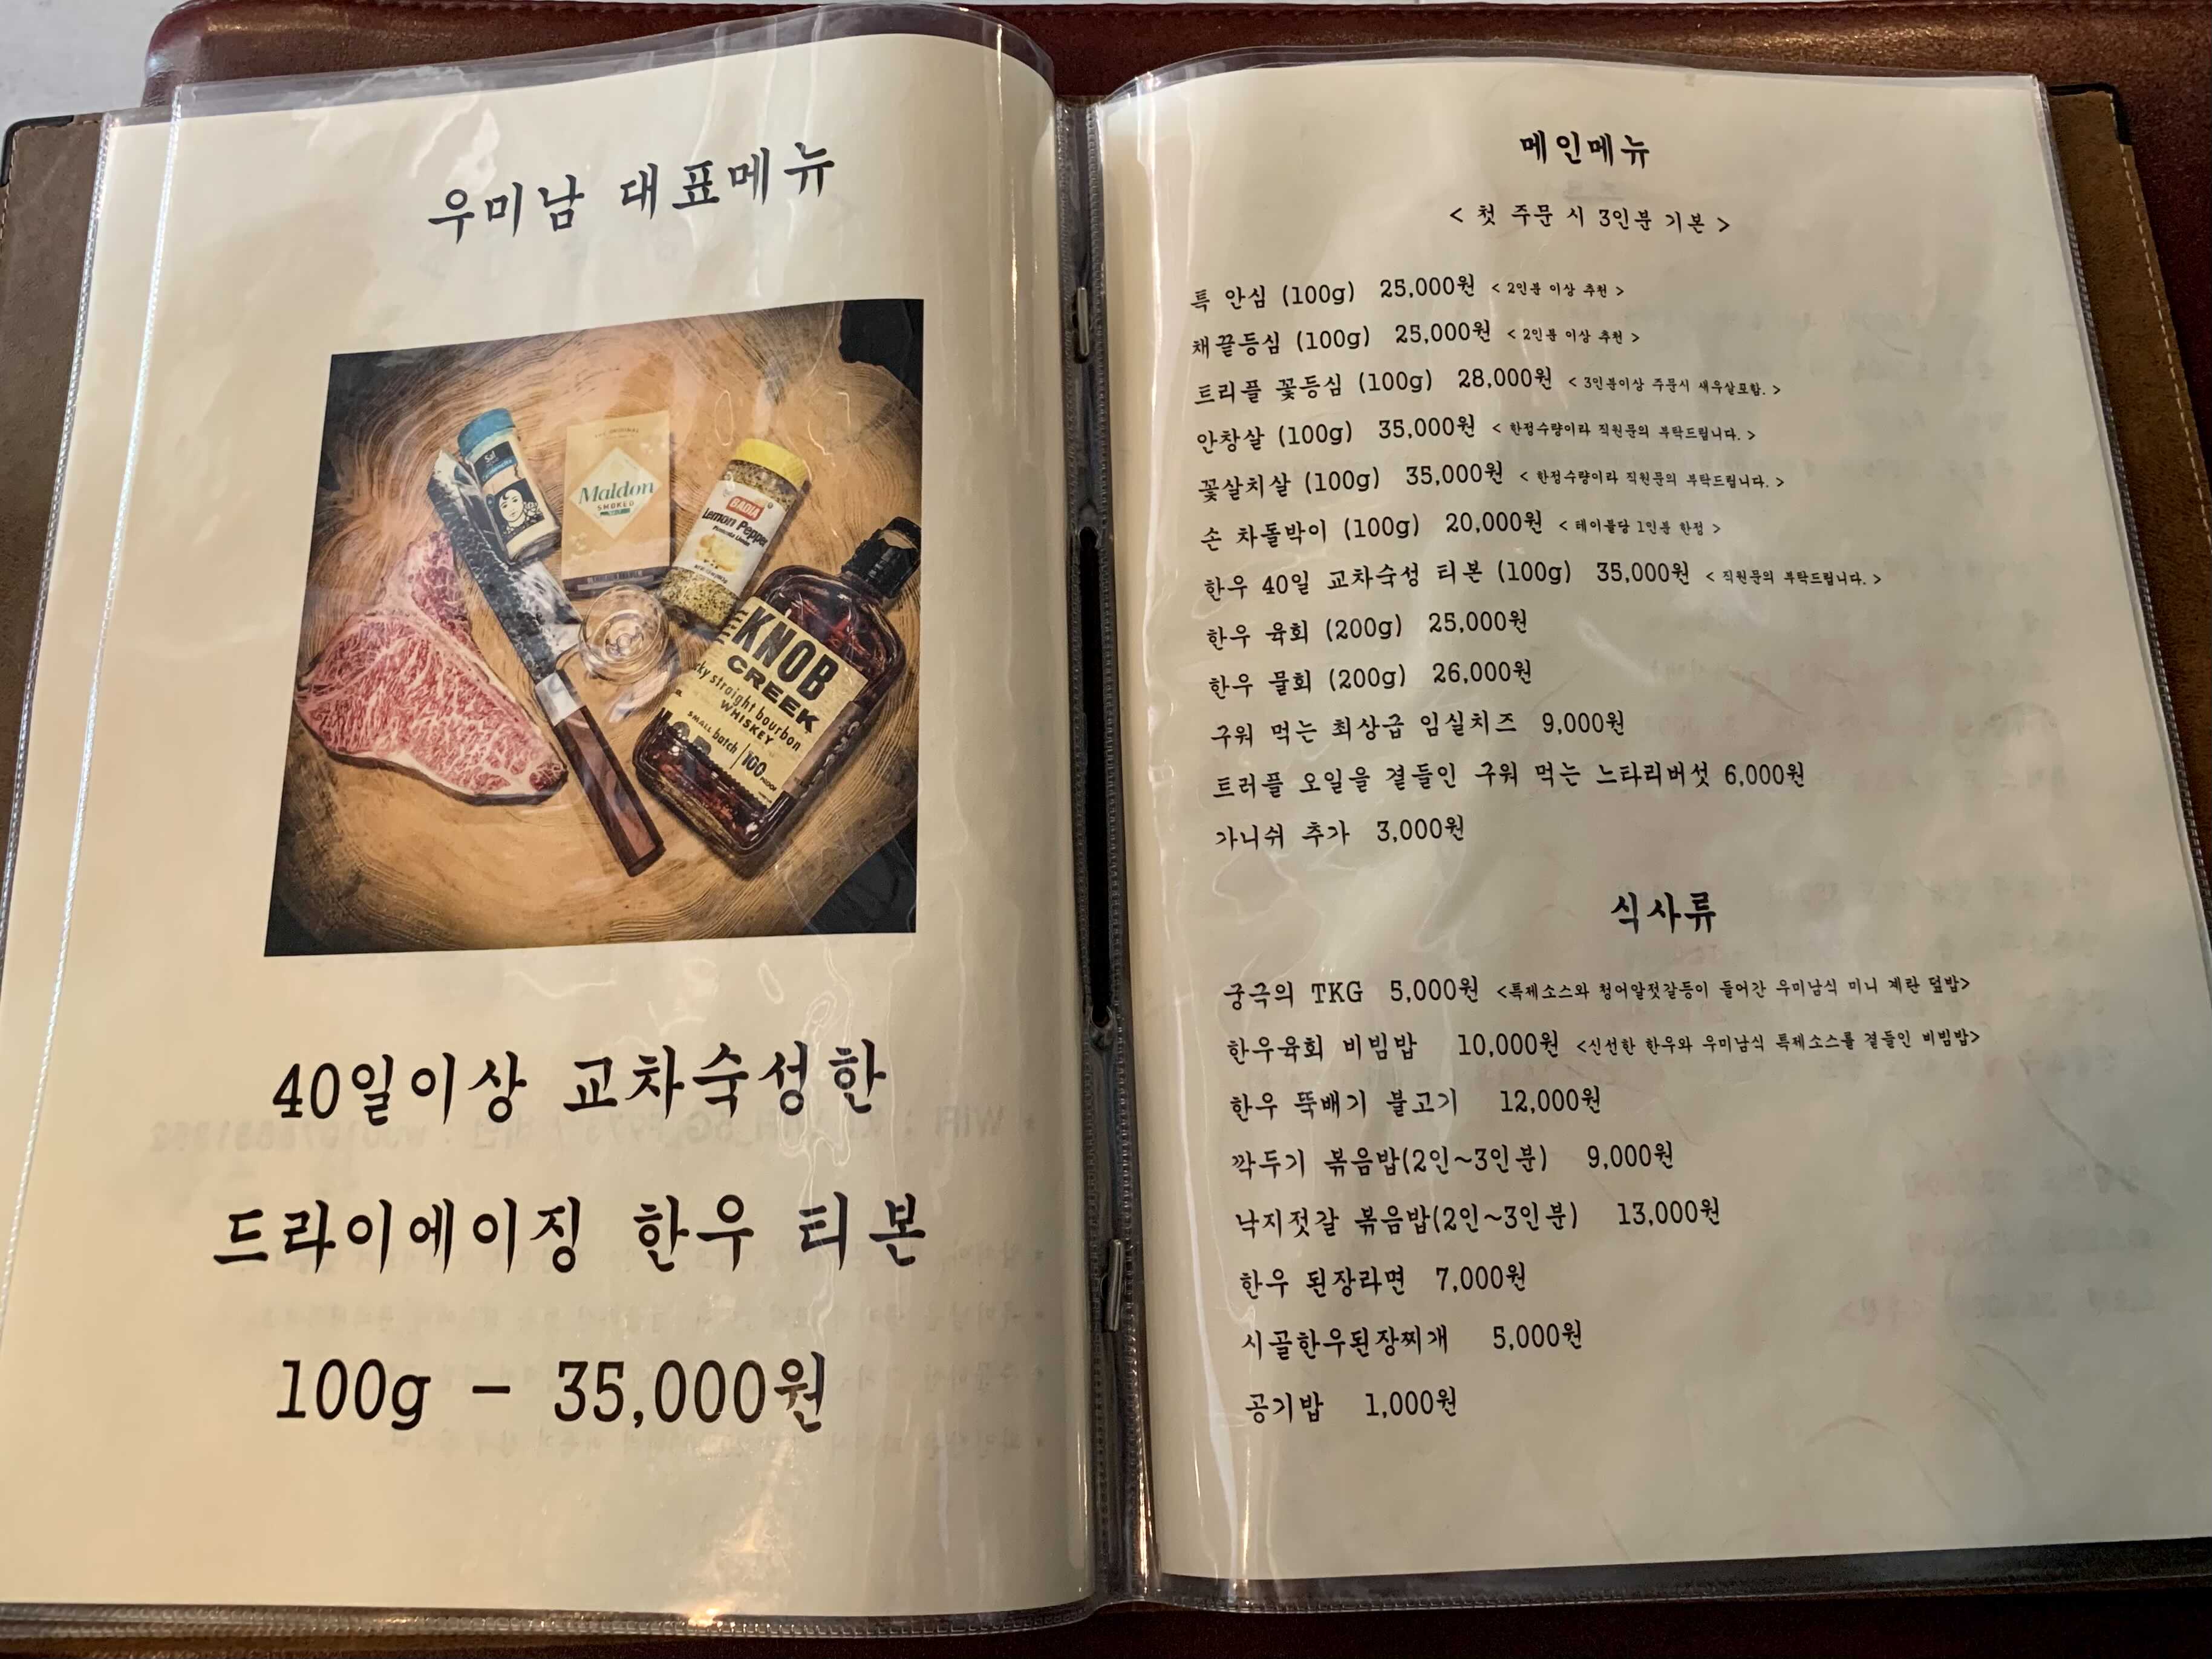 우미남 대표메뉴
Sal
THE ORIGINAL
Maldon
SMOKED
BADIA
Lemon Pepper
Pimienta Limón
KNOB
CREEK
straight bourbon
WHISKEY
SMALL batch
100
PROOF
40일이상 교차숙성한
드라이에이징 한우 티본
100g - 35,000원
메인메뉴
< 첫 주문 시 3인분 기본 >
특 안심 (100g) 25,000원 < 2인분 이상 추천 >
채끝등심 (100g) 25,000원 < 2인분 이상 추천 >
트리플 꽃등심 (100g) 28,000원 < 3인분이상 주문시 새우살포함. >
안창살 (100g) 35,000원 < 한정수량이라 직원문의 부탁드립니다. >
꽃살치살 (100g) 35,000원 < 한정수량이라 직원문의 부탁드립니다. >
손 차돌박이 (100g) 20,000원 < 테이블당 1인분 한정 >
한우 40일 교차숙성 티본 (100g) 35,000원 < 직원문의 부탁드립니다. >
한우 육회 (200g) 25,000원
한우 물회 (200g) 26,000원
구워 먹는 최상급 임실치즈 9,000원
트러플 오일을 곁들인 구워 먹는 느타리버섯 6,000원
가니쉬 추가 3,000원
식사류
궁극의 TKG 5,000원 <특제소스와 청어알젓갈등이 들어간 우미남식 미니 계란 덮밥>
한우육회 비빔밥 10,000원 <신선한 한우와 우미남식 특제소스를 곁들인 비빔밥>
한우 뚝배기 불고기 12,000원
깍두기 볶음밥(2인~3인분) 9,000원
낙지젓갈 볶음밥(2인~3인분) 13,000원
한우 된장라면 7,000원
시골한우된장찌개 5,000원
공기밥 1,000원